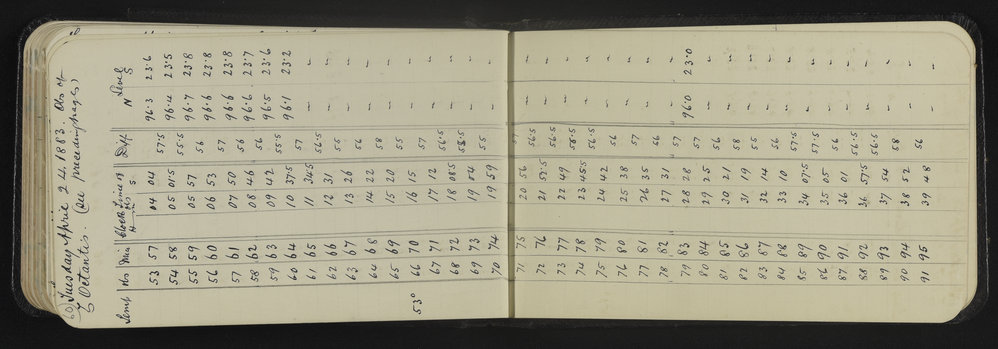 60 Tuesday April 24. 1883. Obs of
σ Octantis. (see preceding pages)
Temp Obs Clock Times of Diff Level
M S N S
53 57 04 04 57.5 96.3 23.6
54 58 05 01.5 55.5 96.4 23.5
55 59 05 57 56 96.7 23.8
56 60 06 53 57 96.6 23.8
57 61 07 50 56 96.6 23.8
58 62 08 46 56 96.6 23.7
59 63 09 42 55.5 96.5 23.6
60 64 10 37.5 57 96.1 23.2
61 65 11 34.5 56.5 - -
62 66 12 31 55 - -
63 67 13 26 56 - -
64 68 14 22 58 - -
65 69 15 20 55 - -
53° 66 70 16 15 57 - -
67 71 17 12 56.5 - -
68 72 18 08.5 55.5 - -
69 73 19 04 55 - -
70 74 19 59
71 75 20 56 57 - -
72 76 21 52.5 56.5 - -
73 77 22 49 56.5 - -
74 78 23 45.5 56.5 - -
75 79 24 42 56 - -
76 80 25 38 57 - -
77 81 26 35 56 - -
78 82 27 31 57 - -
79 83 28 28 57 96.0 23.0
80 84 29 25 56 - -
81 85 30 21 58 - -
82 86 31 19 55 - -
83 87 32 14 56 - -
84 88 33 10 57.5 - -
85 89 34 07.5 57.5 - -
86 90 35 05 56 - -
87 91 36 01 56.5 - -
88 92 36 57.5 56.5 - -
89 93 37 54 58 - -
90 94 38 52 56 - -
91 95 39 48 - -